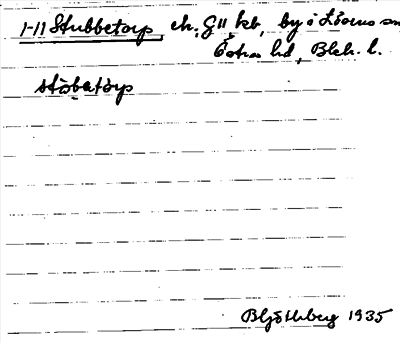 1-11 Stubbetorp, ch, G11 kb, by i Lösens sn
Östra hd, Blek. l.
stòbatórp
B Ljöstberg 1935